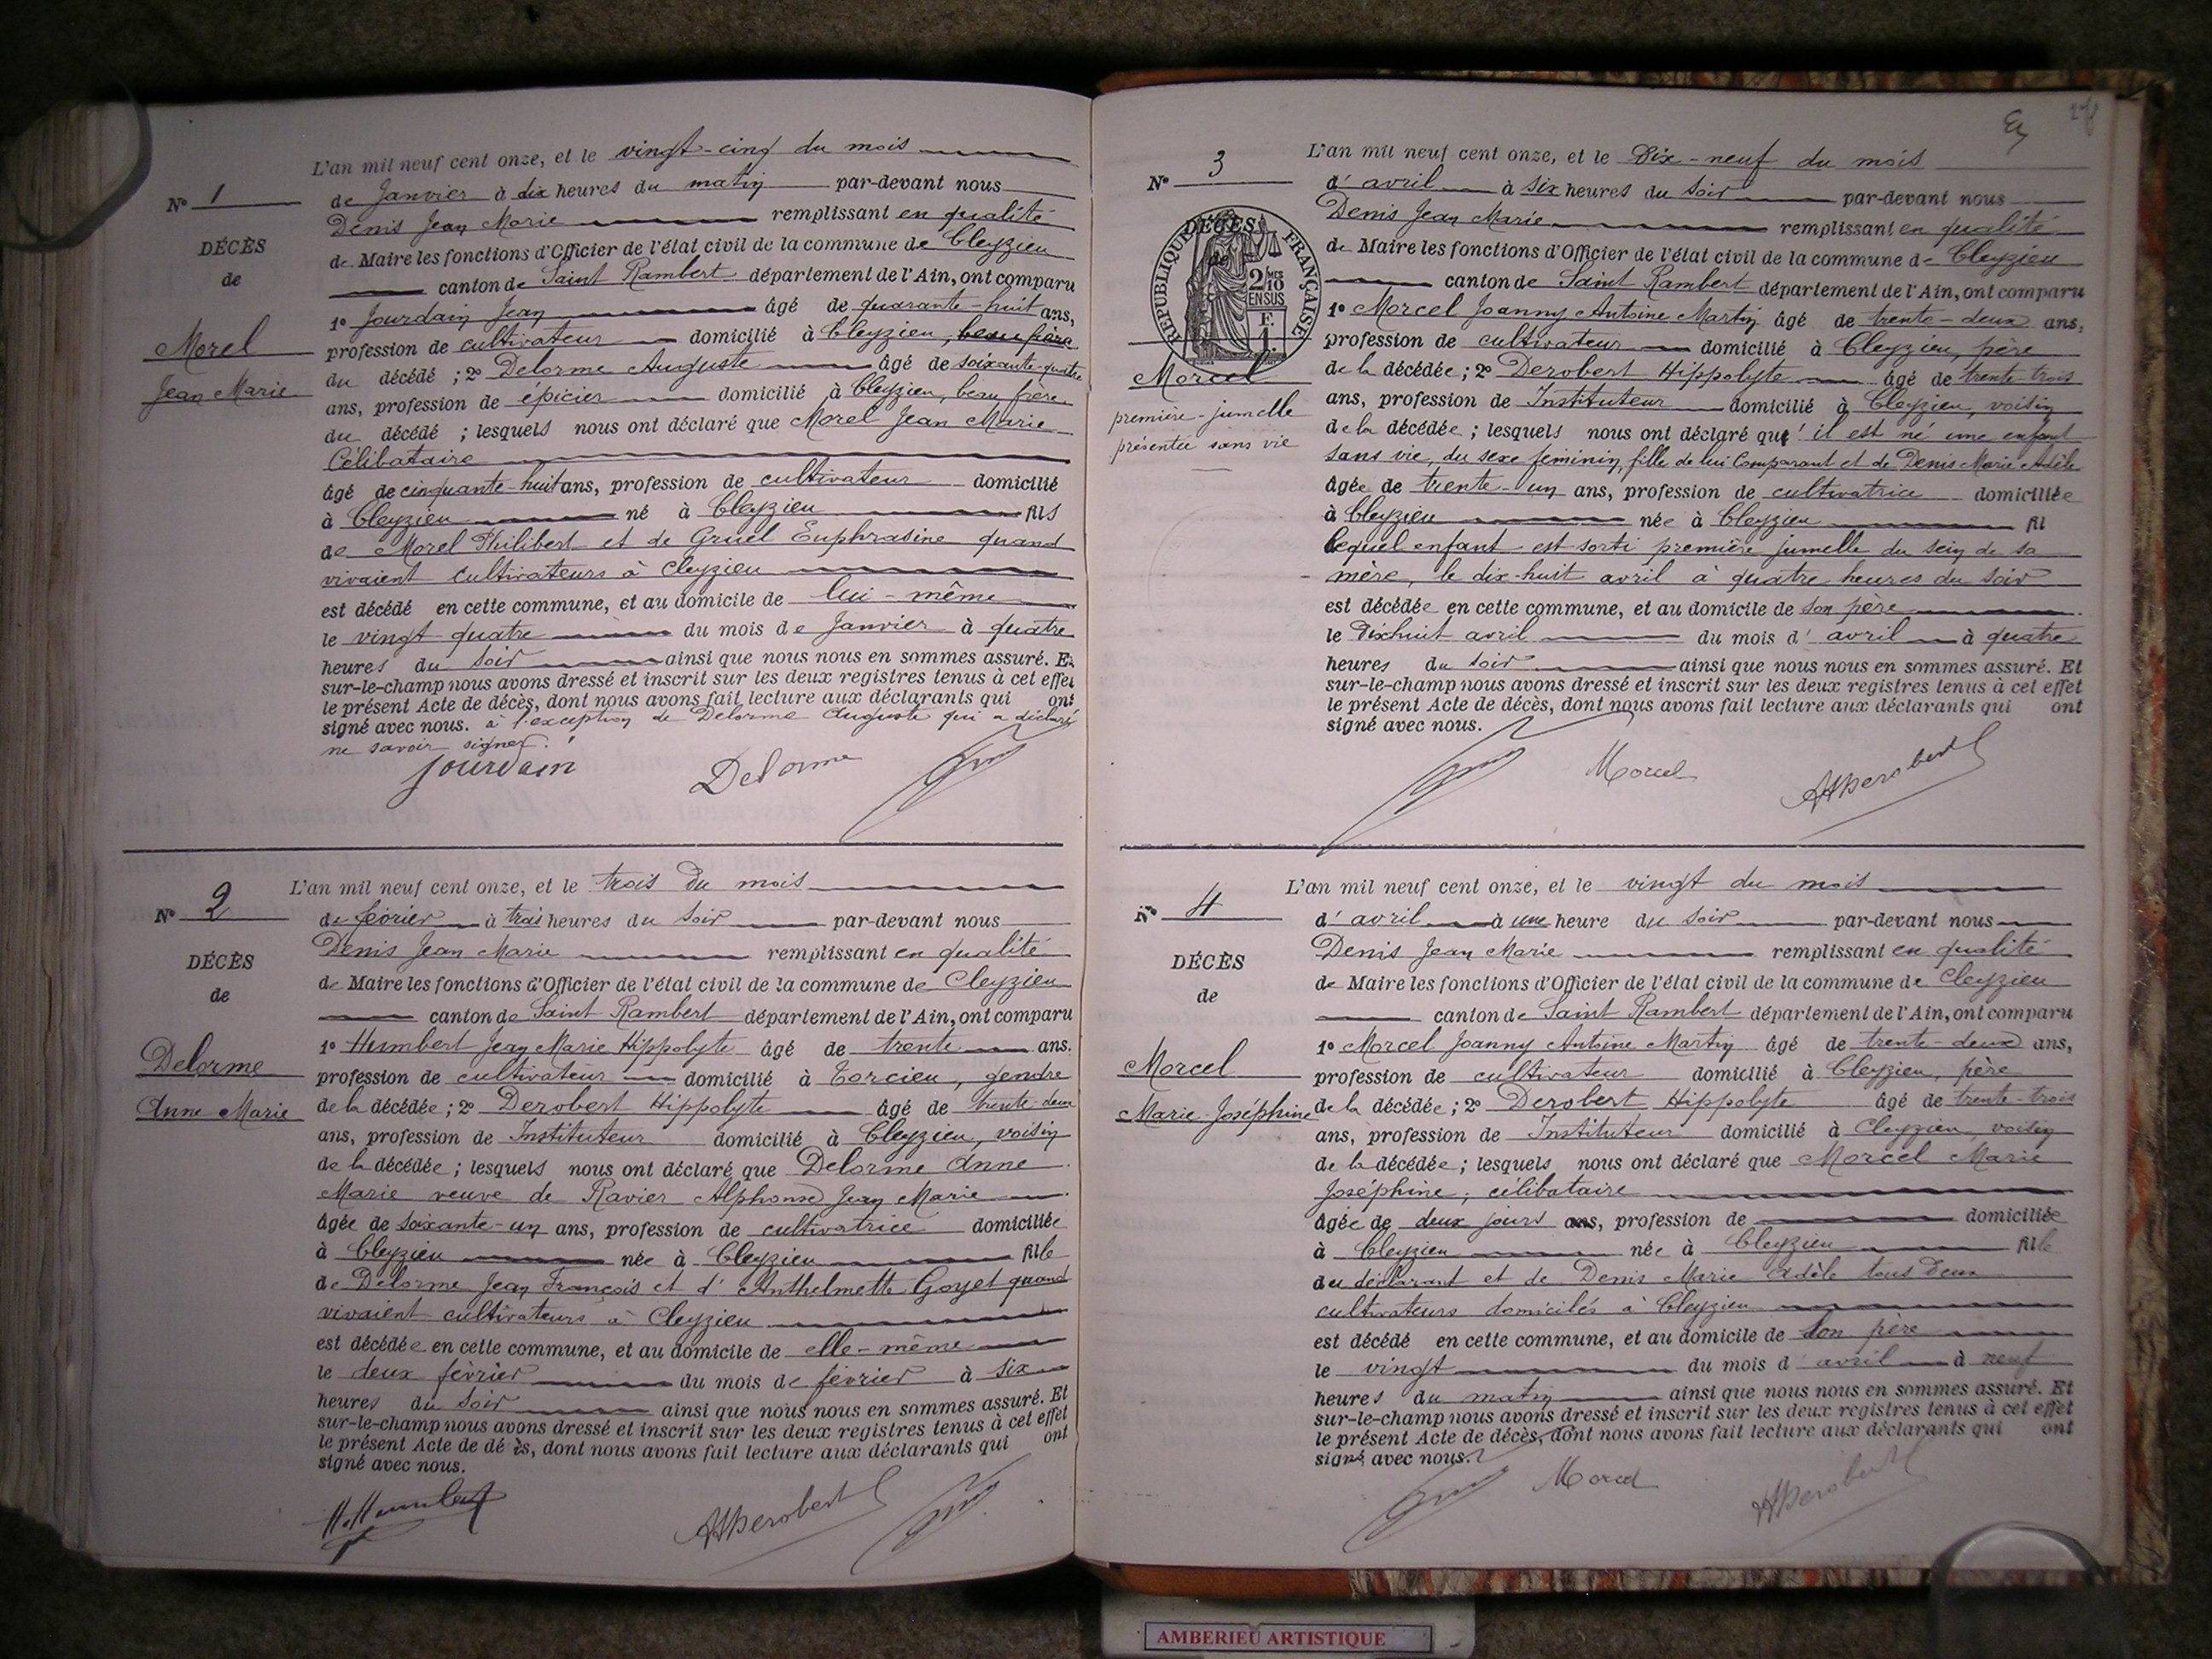 L'an mil neuf cent onze, et le vingt-cinq du mois
N° 1
de Janvier à dix heures du matin par-devant nous
Denis Jean Marie remplissant en qualité
DÉCÈS
de Maire les fonctions d'Officier de l'état civil de la commune de Cleyzieu
de
canton de Saint Rambert département de l'Ain, ont comparu
1° Jourdain Jean âgé de quarante-huit ans,
Morel
profession de cultivateur domicilié à Cleyzieu, beau frère
Jean Marie
du décédé ; 2° Delorme Auguste âgé de soixante-quatre
ans, profession de épicier domicilié à Cleyzieu, beau frère
du décédé ; lesquels nous ont déclaré que Morel Jean Marie
Célibataire
âgé de cinquante-huit ans, profession de cultivateur domicilié
à Cleyzieu né à Cleyzieu fils
de Morel Philibert et de Gruel Euphrasine quand
vivaient cultivateurs à Cleyzieu
est décédé en cette commune, et au domicile de lui-même
le vingt quatre du mois de Janvier à quatre
heures du soir ainsi que nous nous en sommes assuré. Et
sur-le-champ nous avons dressé et inscrit sur les deux registres tenus à cet effet
le présent Acte de décès, dont nous avons fait lecture aux déclarants qui ont
signé avec nous. à l'exception de Delorme Auguste qui a déclaré
ne savoir signer.
Jourdain Delorme
L'an mil neuf cent onze, et le trois du mois
N° 2
de février à trois heures du soir par-devant nous
Denis Jean Marie remplissant en qualité
DÉCÈS
de Maire les fonctions d'Officier de l'état civil de la commune de Cleyzieu
de
canton de Saint Rambert département de l'Ain, ont comparu
1° Humbert Jean Marie Hippolyte âgé de trente ans.
Delorme
profession de cultivateur domicilié à Torcieu, gendre
Anne Marie
de la décédée ; 2° Derobert Hippolyte âgé de trente-deux
ans, profession de Instituteur domicilié à Cleyzieu, voisin
de la décédée ; lesquels nous ont déclaré que Delorme Anne
Marie veuve de Ravier Alphonse Jean Marie
âgée de soixante-un ans, profession de cultivatrice domiciliée
à Cleyzieu née à Cleyzieu fille
de Delorme Jean François et d'Anthelmette Goyet quand
vivaient cultivateurs à Cleyzieu
est décédée en cette commune, et au domicile de elle-même
le deux février du mois de février à six
heures du soir ainsi que nous nous en sommes assuré. Et
sur-le-champ nous avons dressé et inscrit sur les deux registres tenus à cet effet
le présent Acte de dé ès, dont nous avons fait lecture aux déclarants qui ont
signé avec nous.
H. Humbert HHDerobert
L'an mil neuf cent onze, et le Dix-neuf du mois
N° 3
d'avril à six heures du soir par-devant nous
Denis Jean Marie remplissant en qualité
DÉCÈS
de
RÉPUBLIQUE FRANÇAISE
2/10 MES
EN SUS
F.
1
de Maire les fonctions d'Officier de l'état civil de la commune de Cleyzieu
canton de Saint Rambert département de l'Ain, ont comparu
1° Morcel Joanny Antoine Martin âgé de trente-deux ans,
profession de cultivateur domicilié à Cleyzieu, père
Morcel
première-jumelle
présentée sans vie
de la décédée ; 2° Derobert Hippolyte âgé de trente-trois
ans, profession de Instituteur domicilié à Cleyzieu, voisin
de la décédée ; lesquels nous ont déclaré qu'il est né une enfant
sans vie, du sexe féminin, fille de lui Comparant et de Denis Marie Adèle
âgée de trente-un ans, profession de cultivatrice domiciliée
à Cleyzieu née à Cleyzieu fil
lequel enfant est sorti première jumelle du sein de sa
mère, le dix-huit avril à quatre heures du soir
est décédée en cette commune, et au domicile de son père
le Dixhuit avril du mois d'avril à quatre
heures du soir ainsi que nous nous en sommes assuré. Et
sur-le-champ nous avons dressé et inscrit sur les deux registres tenus à cet effet
le présent Acte de décès, dont nous avons fait lecture aux déclarants qui ont
signé avec nous.
Morcel HHDerobert
L'an mil neuf cent onze, et le vingt du mois
N° 4
d'avril à une heure du soir par-devant nous
Denis Jean Marie remplissant en qualité
DÉCÈS
de Maire les fonctions d'Officier de l'état civil de la commune de Cleyzieu
de
canton de Saint Rambert département de l'Ain, ont comparu
1° Morcel Joanny Antoine Martin âgé de trente-deux ans,
Morcel
profession de cultivateur domicilié à Cleyzieu, père
Marie-Joséphine
de la décédée ; 2° Derobert Hippolyte âgé de trente-trois
ans, profession de Instituteur domicilié à Cleyzieu, voisin
de la décédée ; lesquels nous ont déclaré que Morcel Marie
Joséphine, célibataire
âgée de deux jours ans, profession de domiciliée
à Cleyzieu née à Cleyzieu fille
du déclarant et de Denis Marie Adèle tous deux
cultivateurs domiciliés à Cleyzieu
est décédé en cette commune, et au domicile de son père
le vingt du mois d'avril à neuf
heures du matin ainsi que nous nous en sommes assuré. Et
sur-le-champ nous avons dressé et inscrit sur les deux registres tenus à cet effet
le présent Acte de décès, dont nous avons fait lecture aux déclarants qui ont
signé avec nous.
Morcel HHDerobert
AMBERIEU ARTISTIQUE